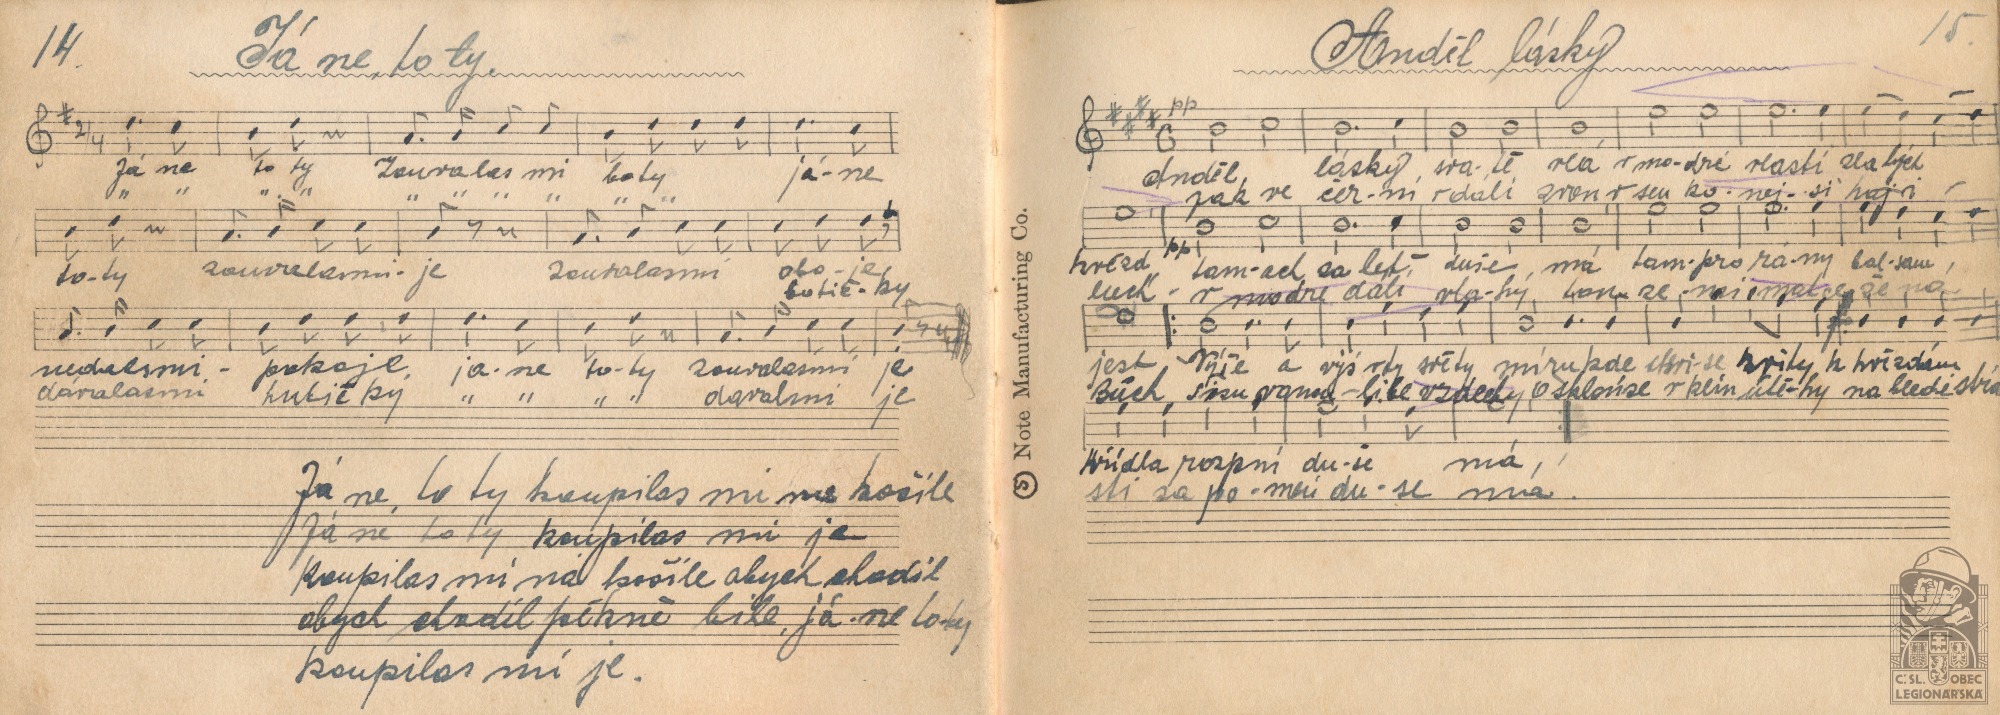 14.
Já ne, to ty.
2/4
Já ne to ty Zouvalas mi boty já-ne
" " " " " " " " "
to-ty zouvalasmi-je zouvalasmi obo-je,
botič-ky
nedalsmi - pokoje, ja-ne to-ty zouvalasmi je
dávalasmi hubičky " " " " davalsmi je
Já ne, to ty koupilas mi košile
Já ne to ty koupilas mi je
koupilas mi na košile abych chodil
abych chodil pěkně bíle, já-ne to-ty
koupilas mi je.
Note Manufacturing Co.
15.
Anděl lásky
pp
C
Anděl, lásky, sva-tě vlá v mo-dré vlasti zlatých
jak ve čer-ní v dáli zvon v sen ko-nej-ší háj i
hvězd pp tam-ach za letí duše, má tam-pro rá-ny bal-sam,
luch - v modré dáli vla-hy, tou ze-
jest Výše a výš v ty světy míru kde k hvězdám
Bůch, vzdechy, skloníse v klín útě-hy na bledé
křídla rozpní du-še má,
stí za po-mění du-še má.
Č.SL. OBEC
LEGIONÁŘSKÁ